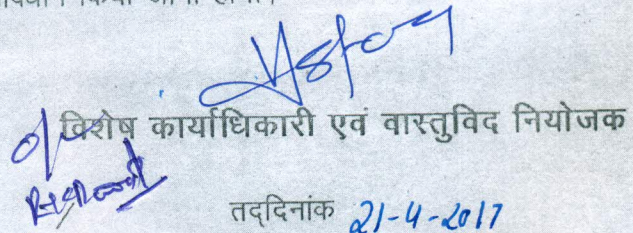 विशेष कार्याधिकारी एवं वास्तुविद नियोजक
तद्दिनांक 21-4-2017